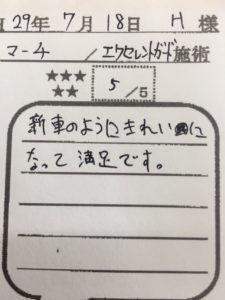 29年 7月 18日 H 様
マーチ / エクセレントガード施術
★★★
★★
5 /5
新車のようにきれいに
なって満足です。